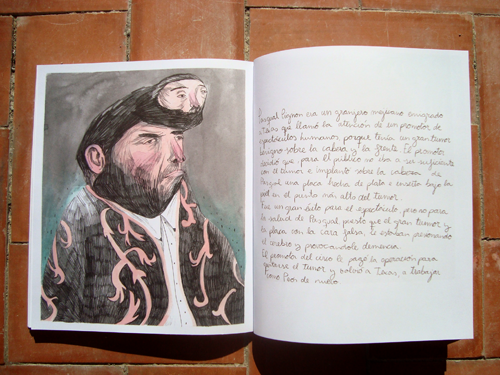 Pasqual Piñon era un granjero mejicano emigrado
a Texas que llamó la atención de un promotor de
espectáculos humanos porque tenía un gran tumor
benigno sobre la cabeza y la frente. El promotor
decidió que para el público no iba a ser suficiente
con el tumor e implantó sobre la cabeza de
Pasqual una placa hecha de plata e insertó bajo la
piel en el punto más alto del tumor.
Fue un gran éxito para el espectáculo, pero no para
la salud de Pasqual puesto que el gran tumor y
la placa con la cara falsa, le estaban presionando
el cerebro y provocandole demencia.
El promotor del circo le pagó la operación para
quitarse el tumor y volvió a Texas a trabajar
como Peón de nuevo.